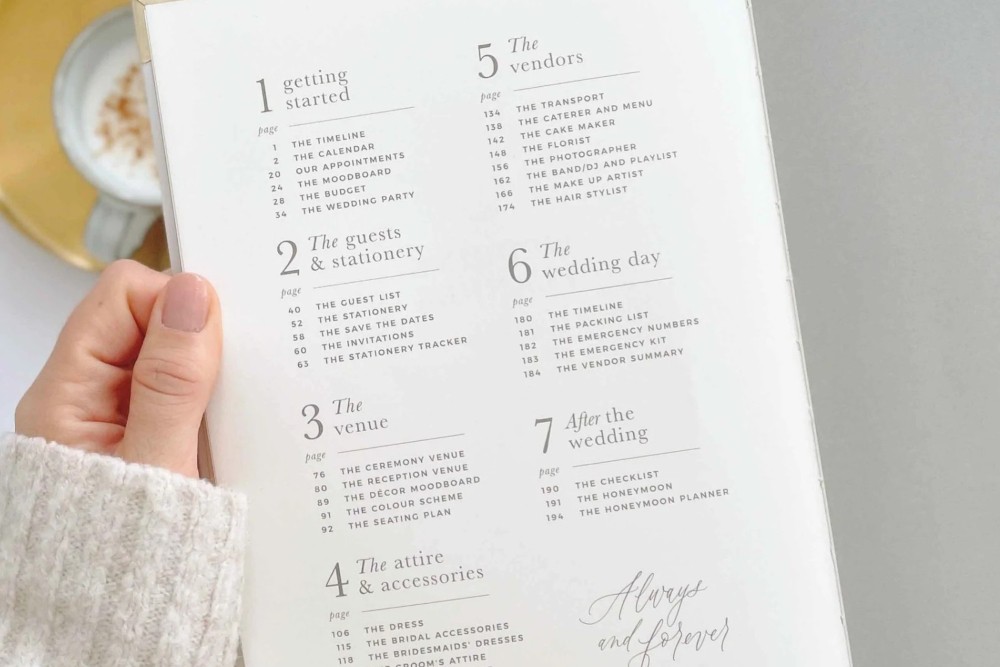 1 getting
started
page
1 THE TIMELINE
2 THE CALENDAR
20 OUR APPOINTMENTS
24 THE MOODBOARD
28 THE BUDGET
34 THE WEDDING PARTY
2 The guests
& stationery
page
40 THE GUEST LIST
52 THE STATIONERY
58 THE SAVE THE DATES
60 THE INVITATIONS
63 THE STATIONERY TRACKER
3 The
venue
page
76 THE CEREMONY VENUE
80 THE RECEPTION VENUE
89 THE DÉCOR MOODBOARD
91 THE COLOUR SCHEME
92 THE SEATING PLAN
4 The attire
& accessories
page
106 THE DRESS
115 THE BRIDAL ACCESSORIES
118 THE BRIDESMAIDS' DRESSES
GROOM'S ATTIRE
5 The
vendors
page
134 THE TRANSPORT
138 THE CATERER AND MENU
142 THE CAKE MAKER
148 THE FLORIST
156 THE PHOTOGRAPHER
162 THE BAND/DJ AND PLAYLIST
166 THE MAKE UP ARTIST
174 THE HAIR STYLIST
6 The
wedding day
page
180 THE TIMELINE
181 THE PACKING LIST
182 THE EMERGENCY NUMBERS
183 THE EMERGENCY KIT
184 THE VENDOR SUMMARY
7 After the
wedding
page
190 THE CHECKLIST
191 THE HONEYMOON
194 THE HONEYMOON PLANNER
Always
and forever